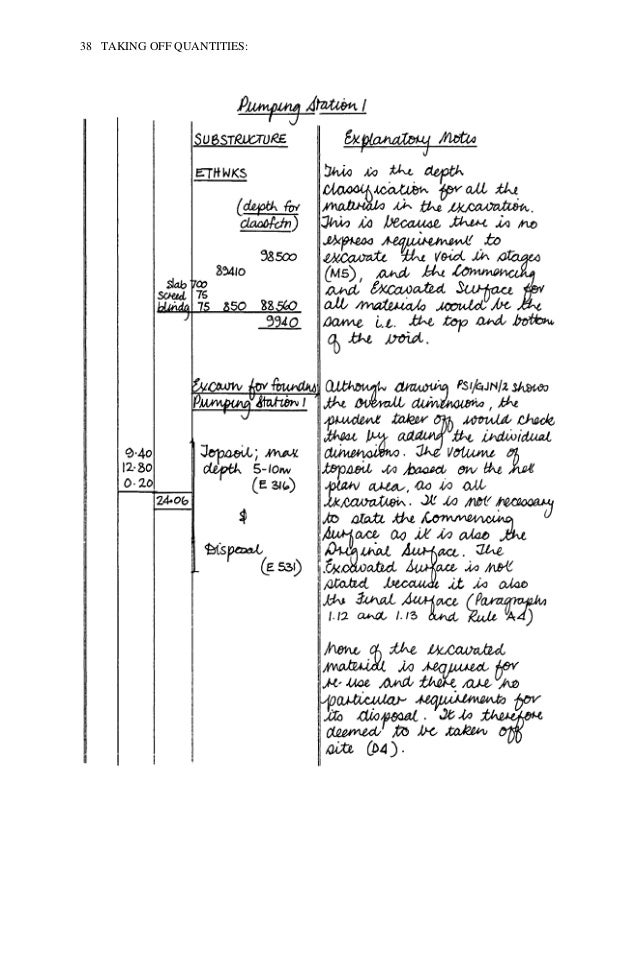 38 TAKING OFF QUANTITIES:
Pumping Station 1
SUBSTRUCTURE
ETHWKS
(depth for
classfctn)
98500
89410
slab 700
screed 75
blindg 75 850 88560
9940
Excavn for foundns
Pumping Station 1
9.40 Topsoil; max
12.80 depth 5-10m
0.20 (E 316)
24.06
&
Disposal
(E 531)
Explanatory Notes
This is the depth
classification for all the
materials in the excavation.
This is because there is no
express requirement to
excavate the void in stages
(M5), and the Commencing
and Excavated Surface for
all materials would be the
same i.e. the top and bottom
of the void.
Although drawing PS1/GJN/2 shows
the overall dimensions, the
prudent taker off would check
these by adding the individual
dimensions. The volume of
topsoil is based on the net
plan area, as is all
excavation. It is not necessary
to state the Commencing
Surface as it is also the
Original Surface. The
Excavated Surface is not
stated because it is also
the Final Surface (Paragraphs
1.12 and 1.13 and Rule A4)
None of the excavated
material is required for
re-use and there are no
particular requirements for
its disposal. It is therefore
deemed to be taken off
site (D4).